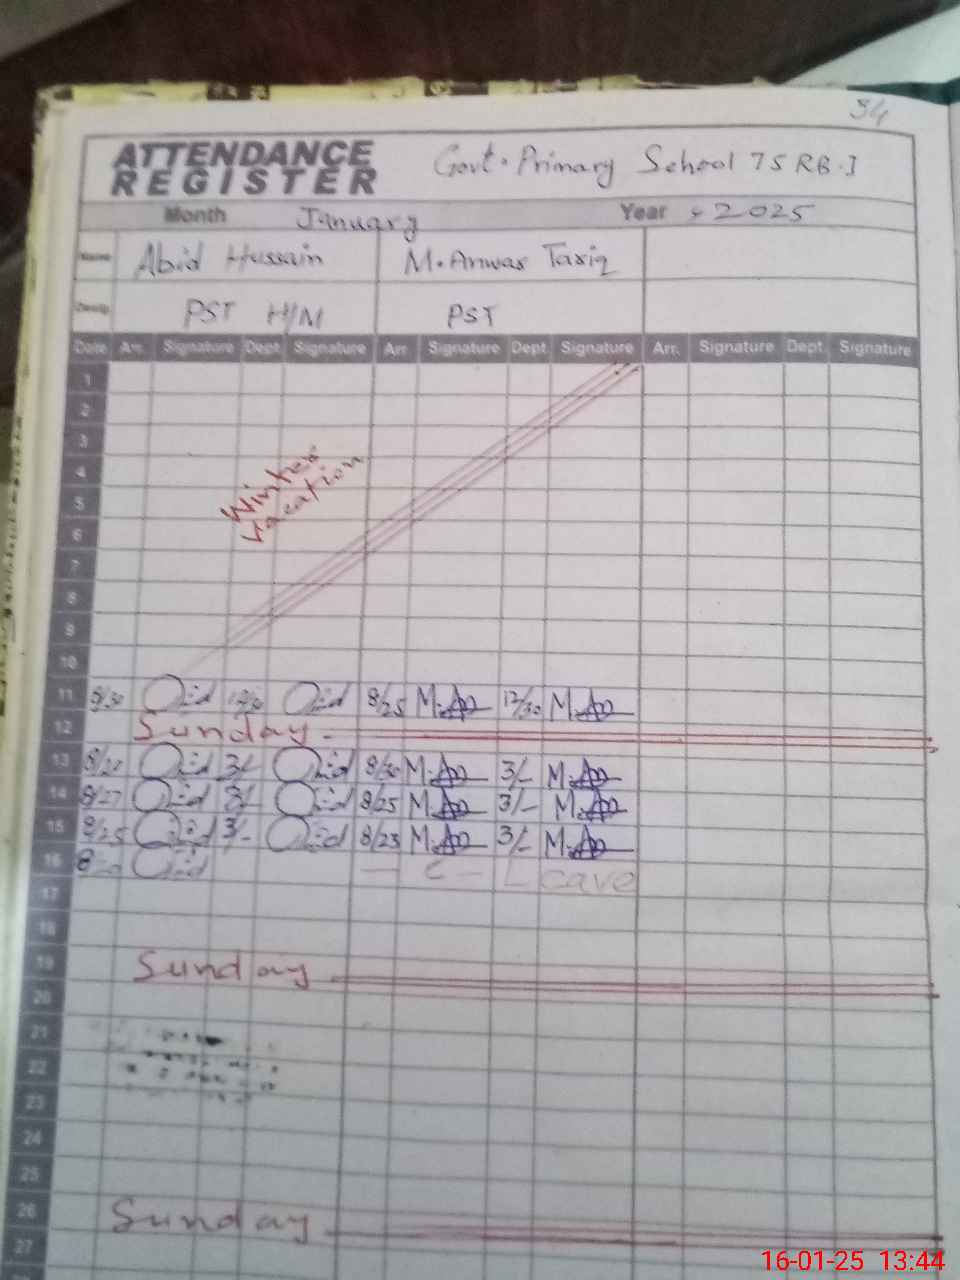 34
ATTENDANCE REGISTER Govt. Primary School 75 RB-I
Month January Year 2025
Name Abid Hussain M. Anwar Tariq
Desig PST H/M PST
Date Arr. Signature Dept. Signature Arr. Signature Dept. Signature Arr. Signature Dept. Signature
1
2
3
4
Winter
5
Vacation
6
7
8
9
10
11 8/30 12/30 8/25 M.A 12/30 M.A
12 Sunday
13 3/- 8/30 M.A 3/- M.A
14 8/27 3/- 8/25 M.A 3/- M.A
15 8/25 3/- 8/23 M.A 3/- M.A
16 C - Leave
17
18
19 Sunday
20
21
22
23
24
25
26 Sunday
27
16-01-25 13:44